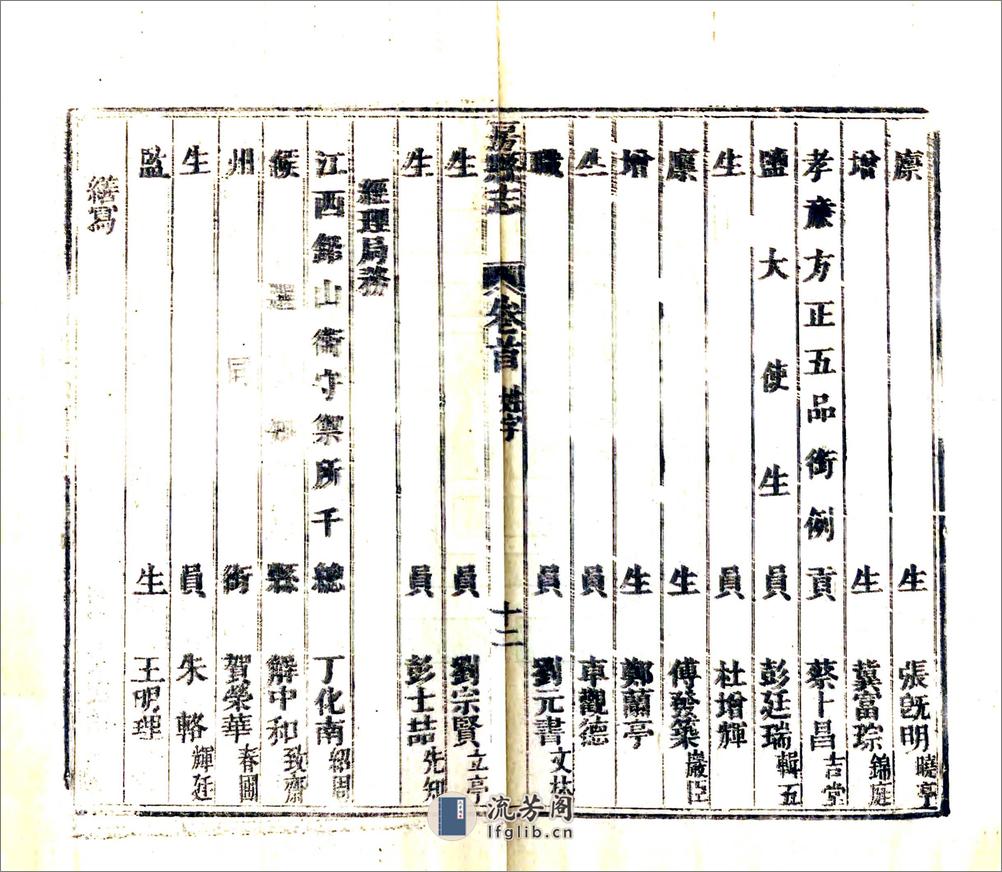 廪生 張既明 曉亭
增生 冀富琮 錦庭
孝廉方正五品銜例貢 蔡卜昌 吉堂
鹽大使生員 彭廷瑞 輯五
生員 杜增輝
廪生 傅發築 巖臣
增生 鄭蘭亭
生員 車觀德
職員 劉元書 文林
房縣志 卷首 姓字 十二
生員 劉宗賢 立亭
生員 彭士喆 先知
經理局務
江西鉛山衛守禦所千總 丁化南 紹周
候選知縣 解中和 致齋
州同銜 賀榮華 春圃
生員 朱輅 輝廷
監生 王明理
繕寫
流芳阁
lfglib.cn